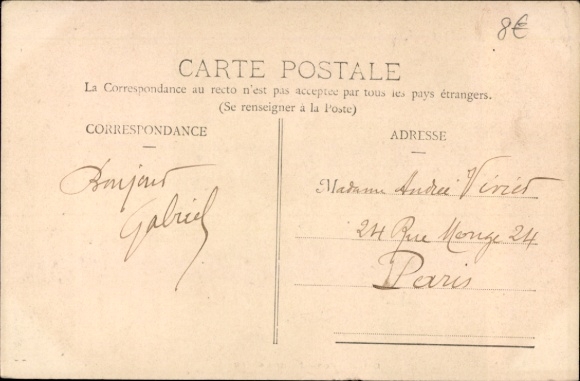 8€
CARTE POSTALE
La Correspondance au recto n'est pas acceptée par tous les pays étrangers.
(Se renseigner à la Poste)
CORRESPONDANCE
Bonjour
Gabriel
ADRESSE
Madame Andrée
24 Rue Monge 24
Paris